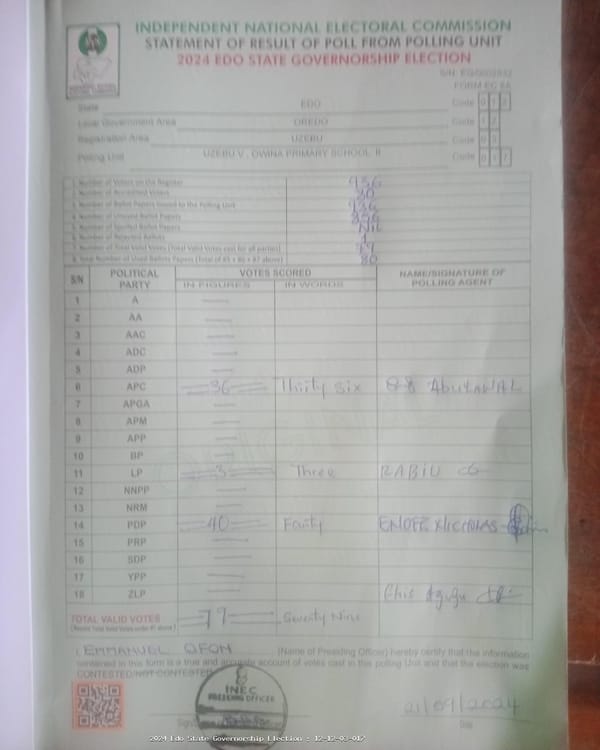 INDEPENDENT NATIONAL ELECTORAL COMMISSION
STATEMENT OF RESULT OF POLL FROM POLLING UNIT
2024 EDO STATE GOVERNORSHIP ELECTION
FORM EC 8A
State EDO Code 0 1 2
Local Government Area OREDO Code 1 2
Registration Area UZEBU Code 0 3
Polling Unit UZEBU V. OWINA PRIMARY SCHOOL II Code 0 1 2
1. Number of Voters on the Register 936
2. Number of Accredited Voters 80
3. Number of Ballot Papers Issued to the Polling Unit 936
4. Number of Unused Ballot Papers 856
5. Number of Spoiled Ballot Papers Nil
6. Number of Rejected Ballots 1
7. Number of Total Valid Votes (Total Valid Votes cast for all parties) 79
8. Total Number of Used Ballot Papers (Total of #5 + #6 + #7 above) 80
S/N POLITICAL PARTY VOTES SCORED NAME/SIGNATURE OF POLLING AGENT
IN FIGURES IN WORDS
1 A
2 AA
3 AAC
4 ADC
5 ADP
6 APC 36 Thirty Six
7 APGA
8 APM
9 APP
10 BP
11 LP 3 Three RABIU
12 NNPP
13 NRM
14 PDP 40 Fourty
15 PRP
16 SDP
17 YPP
18 ZLP
TOTAL VALID VOTES 79 Seventy Nine
I EMMANUEL OFON (Name of Presiding Officer) hereby certify that the information
contained in this form is a true and accurate account of votes cast in this polling Unit and that the election was
CONTESTED/NOT CONTESTED
INEC
PRESIDING OFFICER
21/09/2024
Date
2024 Edo State Governorship Election : 12-12-03-012